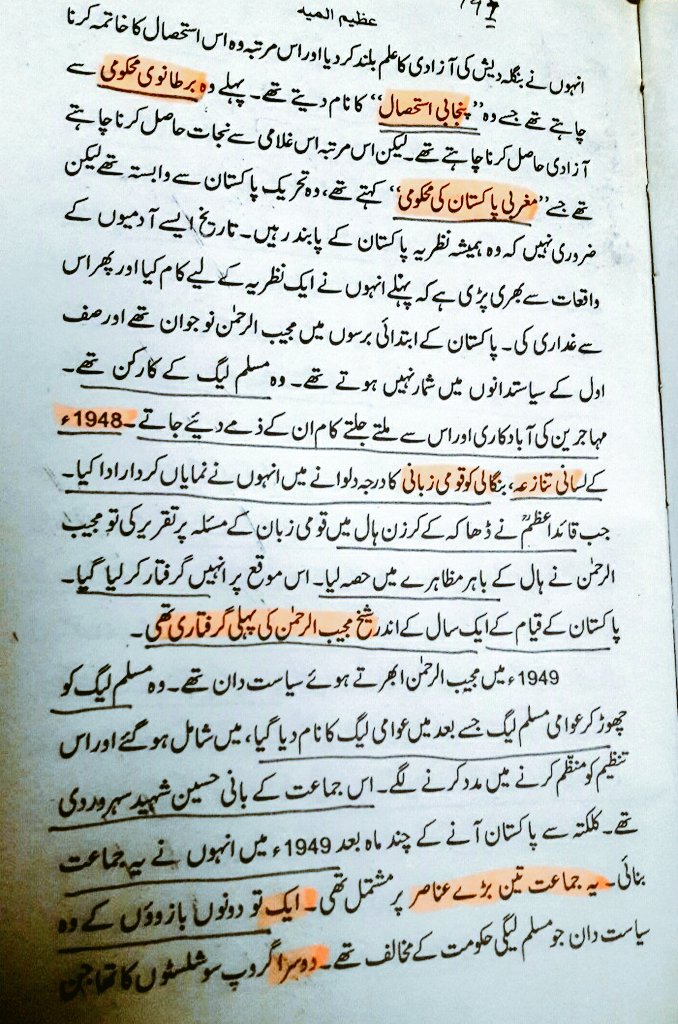 عظیم المیہ
انہوں نے بنگلہ دیش کی آزادی کا علم بلند کر دیا اور اس مرتبہ وہ اس استحصال کا خاتمہ کرنا
چاہتے تھے جسے وہ "پنجابی استحصال" کا نام دیتے تھے۔ پہلے وہ برطانوی محکومی سے
آزادی حاصل کرنا چاہتے تھے۔ لیکن اس مرتبہ اس غلامی سے نجات حاصل کرنا چاہتے
تھے جسے "مغربی پاکستان کی محکومی" کہتے تھے، وہ تحریک پاکستان سے وابستہ تھے لیکن
ضروری نہیں کہ وہ ہمیشہ نظریہ پاکستان کے پابند رہیں۔ تاریخ ایسے آدمیوں کے
واقعات سے بھری پڑی ہے کہ پہلے انہوں نے ایک نظریہ کے لیے کام کیا اور پھر اس
سے غداری کی۔ پاکستان کے ابتدائی برسوں میں مجیب الرحمٰن نوجوان تھے اور صف
اول کے سیاستدانوں میں شمار نہیں ہوتے تھے۔ وہ مسلم لیگ کے کارکن تھے۔
مہاجرین کی آبادکاری اور اس سے ملتے جلتے کام ان کے ذمے دیئے جاتے۔ 1948ء
کے لسانی تنازعہ، بنگالی کو قومی زبانی کا درجہ دلوانے میں انہوں نے نمایاں کردار ادا کیا۔
جب قائداعظمؒ نے ڈھاکہ کے کرزن ہال میں قومی زبان کے مسئلہ پر تقریر کی تو مجیب
الرحمٰن نے ہال کے باہر مظاہرے میں حصہ لیا۔ اس موقع پر انہیں گرفتار کر لیا گیا۔
پاکستان کے قیام کے ایک سال کے اندر شیخ مجیب الرحمٰن کی پہلی گرفتاری تھی۔
1949ء میں مجیب الرحمٰن ابھرتے ہوئے سیاست دان تھے۔ وہ مسلم لیگ کو
چھوڑ کر عوامی مسلم لیگ جسے بعد میں عوامی لیگ کا نام دیا گیا، میں شامل ہو گئے اور اس
تنظیم کو منظّم کرنے میں مدد کرنے لگے۔ اس جماعت کے بانی حسین شہید سہروردی
تھے۔ کلکتہ سے پاکستان آنے کے چند ماہ بعد 1949ء میں انہوں نے یہ جماعت
بنائی۔ یہ جماعت تین بڑے عناصر پر مشتمل تھی۔ ایک تو دونوں بازوؤں کے وہ
سیاست دان جو مسلم لیگی حکومت کے مخالف تھے۔ دوسرا گروپ سوشلسٹوں کا تھا جن